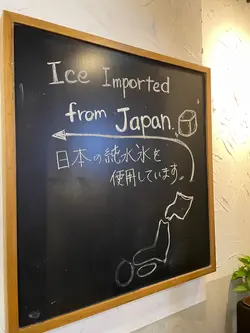 Ice Imported
from Japan.
日本の純水氷を
使用しています。